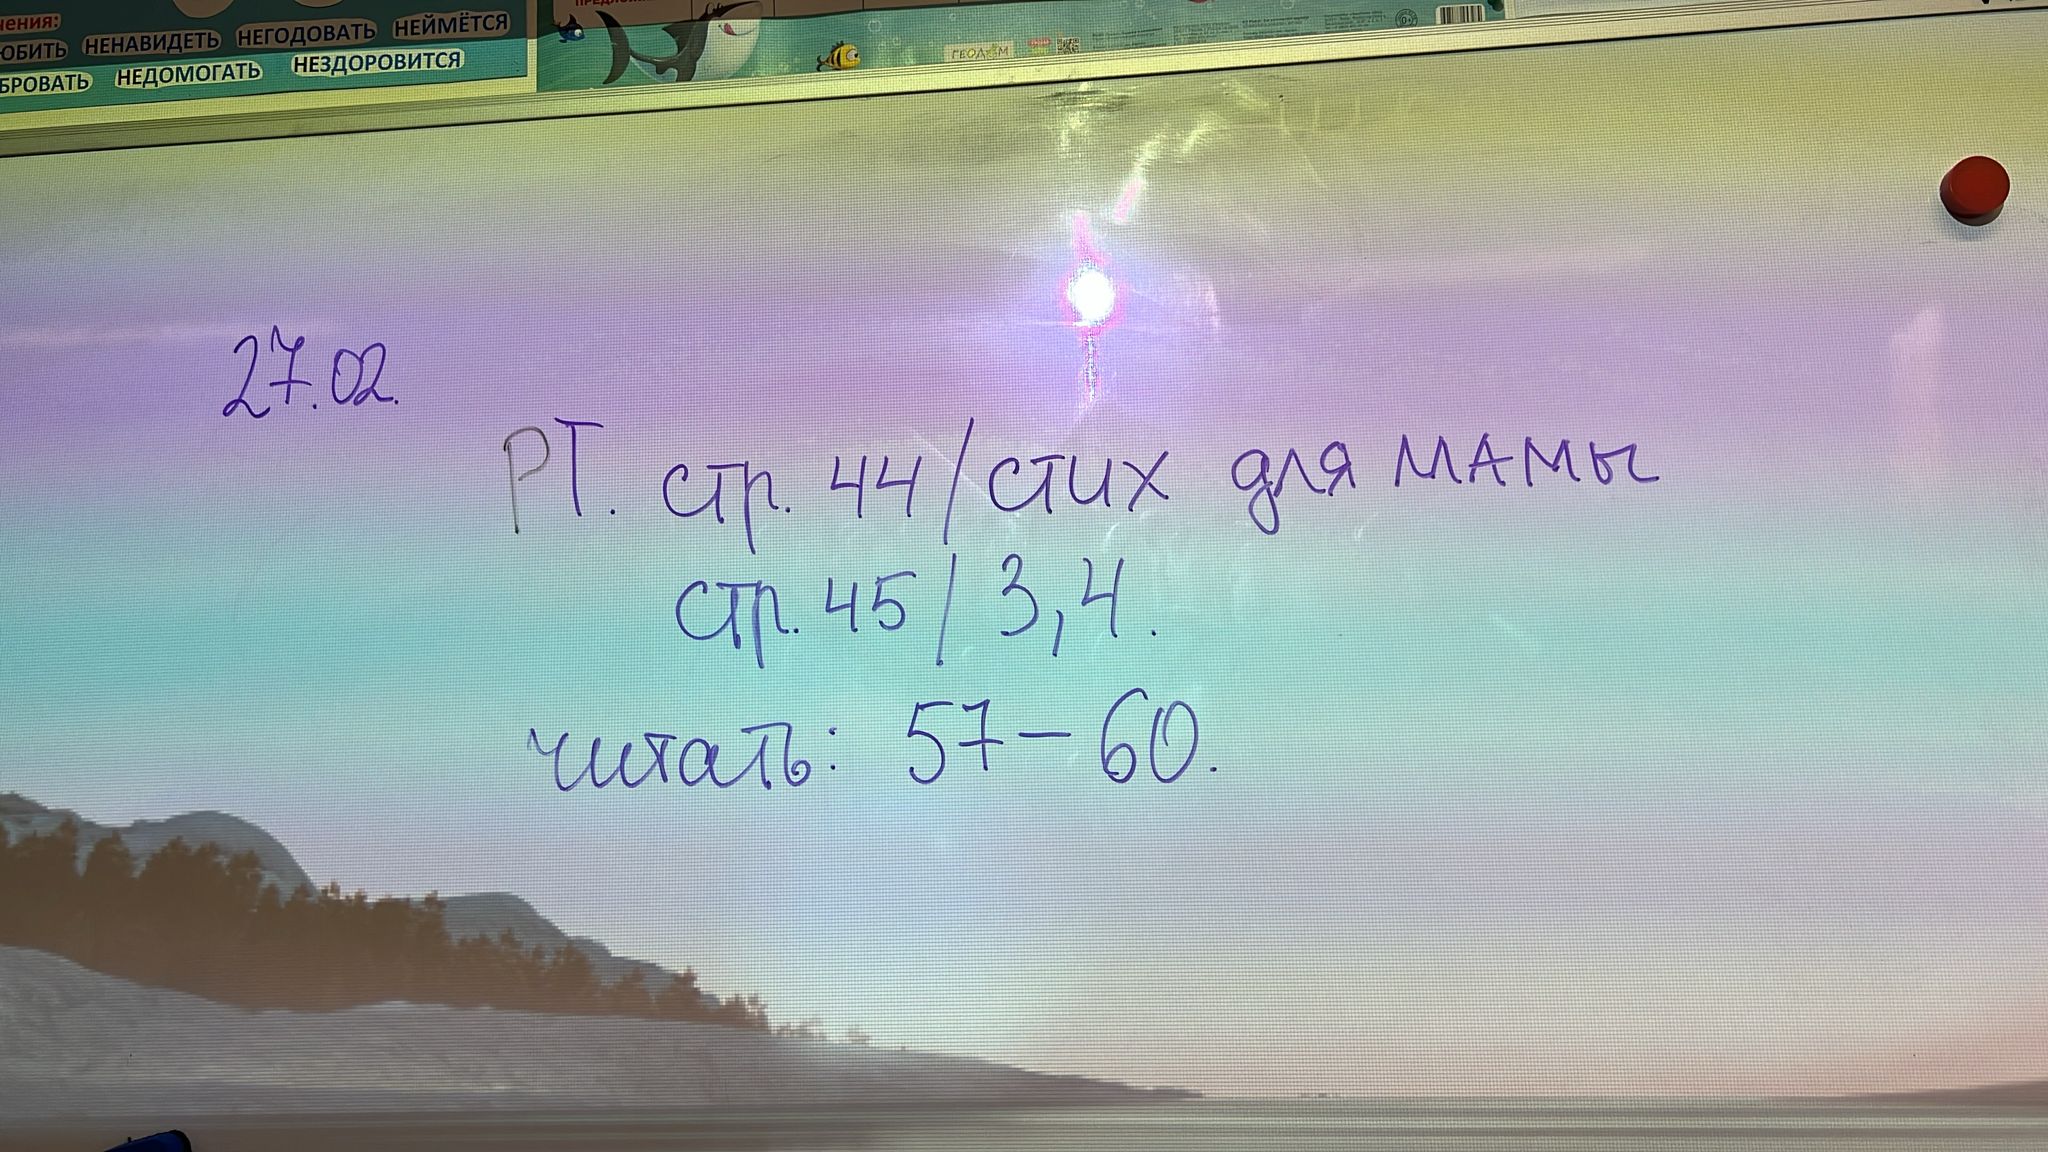 чения:
ЮБИТЬ НЕНАВИДЕТЬ НЕГОДОВАТЬ НЕЙМЁТСЯ
БРОВАТЬ НЕДОМОГАТЬ НЕЗДОРОВИТСЯ
ГЕОДОМ
0+
27.02.
РТ. стр. 44/стих для МАМЫ
стр. 45/ 3,4.
читать: 57-60.